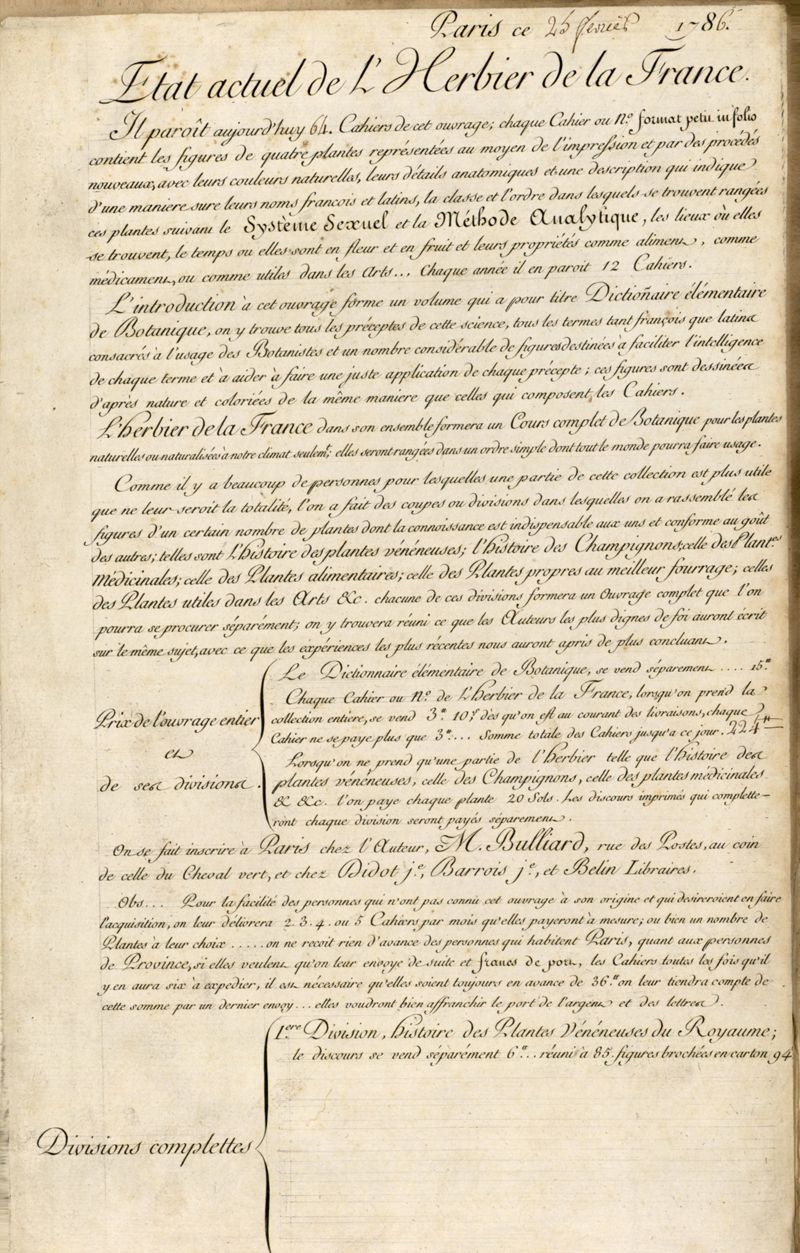 Paris ce 25 fevrier 1786.
Etat actuel de L'Herbier de la France.
Il paroît aujourd'huy 64. Cahiers de cet ouvrage; chaque Cahier ou N.º format petit in folio
contient les figures de quatre plantes représentées au moyen de l'impression et par des procédés
nouveaux, avec leurs couleurs naturelles, leurs détails anatomiques et une description qui indique
d'une maniere sure leurs noms francois et latins, la classe et l'ordre dans lesquels se trouvent rangées
ces plantes suivant le Système Sexuel et la Méthode Analytique, les lieux où elles
se trouvent, le temps ou elles sont en fleur et en fruit et leurs propriétés comme aliment, comme
médicament, ou comme utiles dans les Arts... Chaque année il en paroit 12 Cahiers.
L'introduction à cet ouvrage forme un volume qui a pour titre Dictioñaire élémentaire
de Botanique, on y trouve tous les préceptes de cette science, tous les termes tant françois que latins
consacrés à l'usage des Botanistes et un nombre considérable de figures destinées à faciliter l'intelligence
de chaque terme et à aider à faire une juste application de chaque précepte; ces figures sont dessinées
d'après nature et coloriées de la même maniere que celles qui composent les Cahiers.
L'herbier de la France dans son ensemble formera un Cours complet de Botanique pour les plantes
naturelles ou naturalisées à notre climat seulem.t; elles seront rangées dans un ordre simple dont tout le monde pourra faire usage.
Comme il y a beaucoup de personnes pour lesquelles une partie de cette collection est plus utile
que ne leur seroit la totalité, l'on a fait des coupes ou divisions dans lesquelles on a rassemblé les
figures d'un certain nombre de plantes dont la connoissance est indispensable aux uns et conforme au goût
des autres; telles sont l'histoire des plantes vénéneuses; l'histoire des Champignons; celle des Plant.es
Médicinales; celle des Plantes alimentaires; celle des Plantes propres au meilleur fourrage; celles
des Plantes utiles dans les Arts &c. chacune de ces divisions formera un Ouvrage complet que l'on
pourra se procurer séparément; on y trouvera réuni ce que les Auteurs les plus dignes de foi auront écrit
sur le même sujet, avec ce que les expériences les plus récentes nous auront apris de plus concluant.
Prix de l'ouvrage entier
et
de ses divisions.
Le Dictionnaire élémentaire de Botanique, se vend séparement .... 15.tt
Chaque Cahier ou N.º de L'herbier de la France, lorsqu'on prend la
collection entiere, se vend 3.tt 10.s dès qu'on est au courant des livraisons, chaque
Cahier ne se paye plus que 3.tt... Somme totale des Cahiers jusqu'a ce jour. 224.tt
Lorsqu'on ne prend qu'une partie de l'herbier telle que l'histoire des
plantes vénéneuses, celle des Champignons, celle des plantes médicinales
& &c. l'on paye chaque plante 20 Sols. Les discours imprimés qui complette-
ront chaque division seront payés séparement.
On se fait inscrire à Paris chez l'Auteur, M. Bulliard, rue des Postes, au coin
de celle du Cheval vert, et chez Didot j.e, Barrois j.e, et Belin Libraires.
Obs... Pour la facilité des personnes qui n'ont pas connû cet ouvrage à son origine et qui desireroient en faire
l'acquisition, on leur délivrera 2. 3. 4. ou 5 Cahiers par mois qu'elles payeront à mesure; ou bien un nombre de
Plantes à leur choix ..... on ne recoit rien d'avance des personnes qui habitent Paris, quant aux personnes
de Province, si elles veulent qu'on leur envoye de suite et francs de port, les Cahiers toutes les fois qu'il
y en aura six à expedier, il est nécessaire qu'elles soient toujours en avance de 36.tt on leur tiendra compte de
cette somme par un dernier envoy... elles voudront bien affranchir le port de l'argent et des lettres.
Divisions complettes
1.ere Division, histoire des Plantes Vénéneuses du Royaume;
le discours se vend séparément 6.tt.. réuni à 85. figures brochées en carton 94